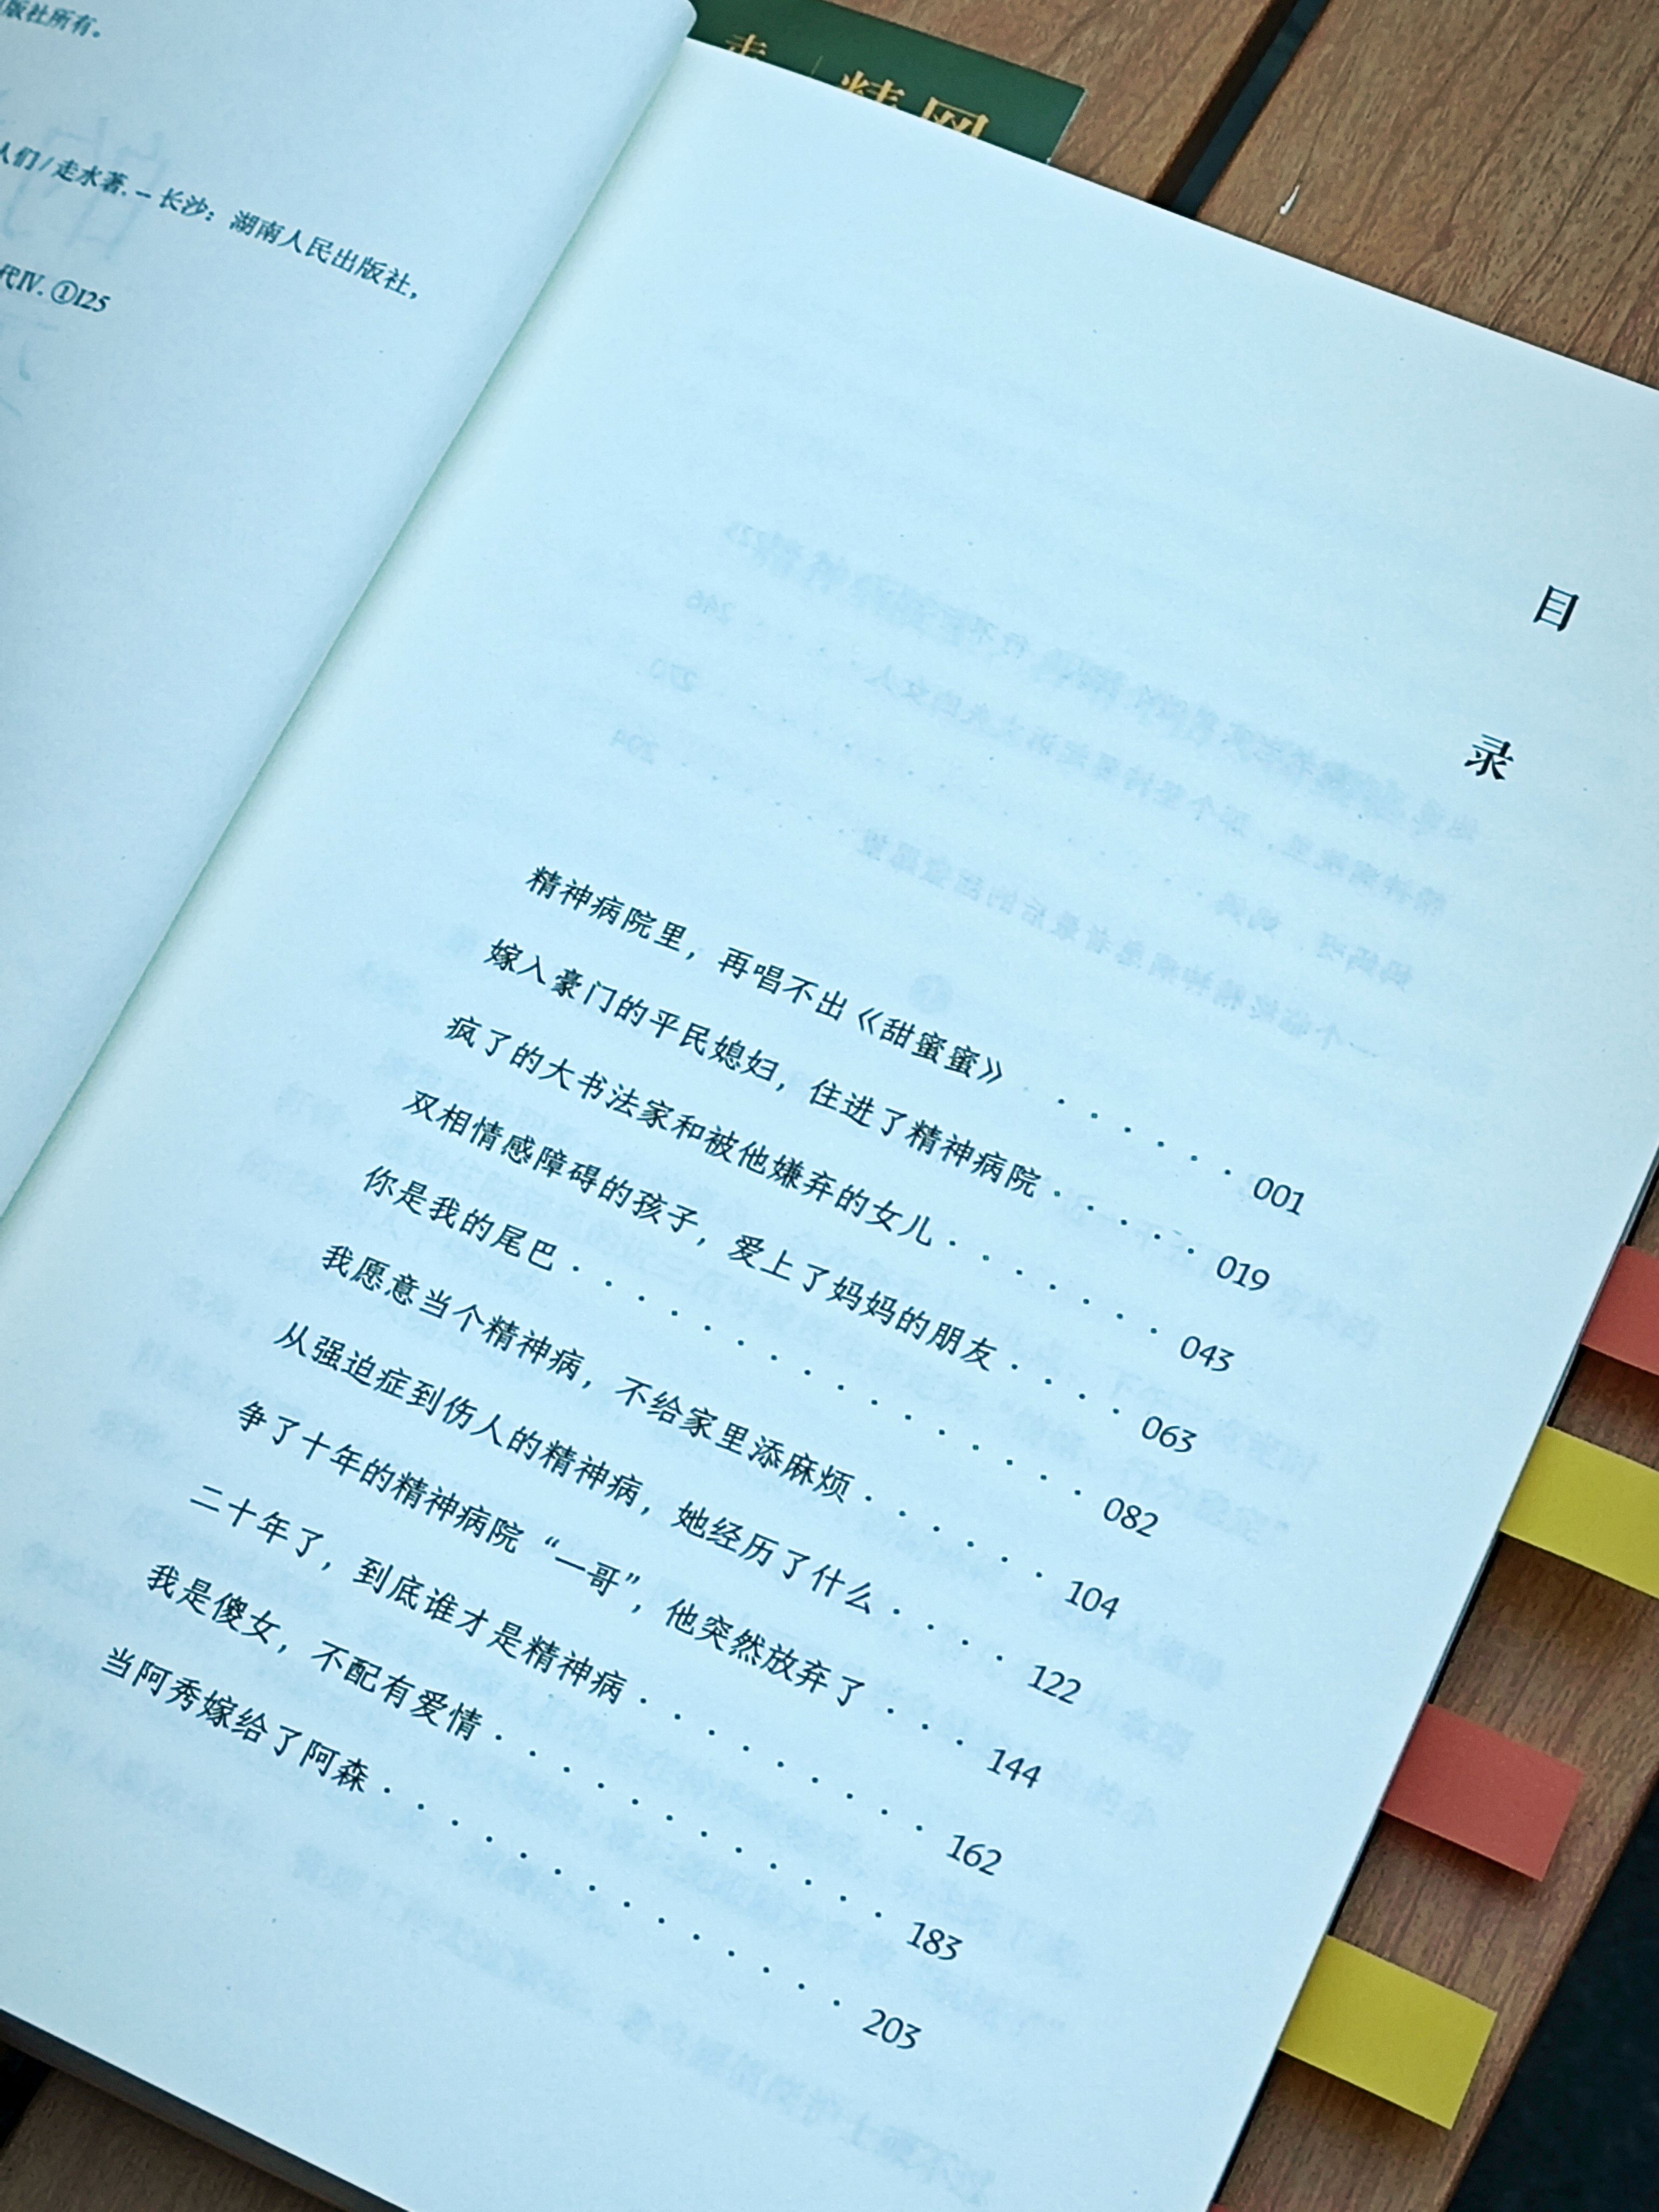 版社所有。
人们 / 走水著. – 长沙：湖南人民出版社，
代Ⅳ. ①I25
精网
目
录
精神病院里，再唱不出《甜蜜蜜》 · · · · · · 001
嫁入豪门的平民媳妇，住进了精神病院 · · · · · 019
疯了的大书法家和被他嫌弃的女儿 · · · · · · · 043
双相情感障碍的孩子，爱上了妈妈的朋友 · · · · 063
你是我的尾巴 · · · · · · · · · · · · · · · 082
我愿意当个精神病，不给家里添麻烦 · · · · · · 104
从强迫症到伤人的精神病，她经历了什么 · · · · 122
争了十年的精神病院“一哥”，他突然放弃了 · · · 144
二十年了，到底谁才是精神病 · · · · · · · · · 162
我是傻女，不配有爱情 · · · · · · · · · · · · 183
当阿秀嫁给了阿森 · · · · · · · · · · · · · · 203